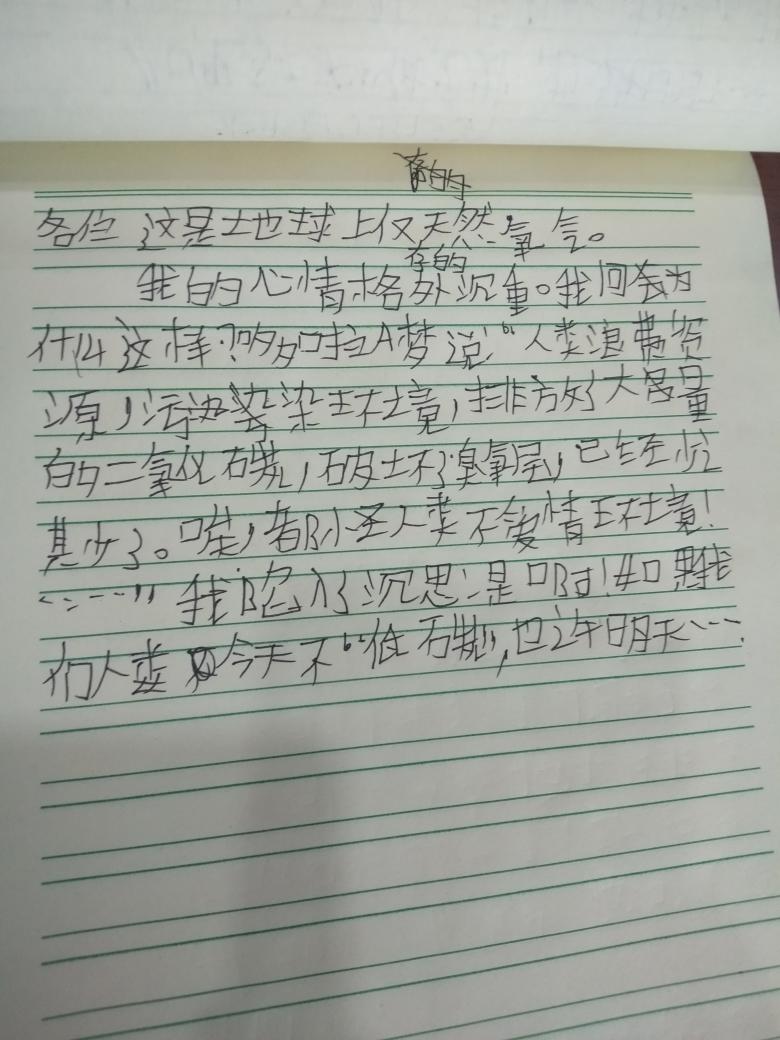 各位 这是地球上仅存的天然氧气。
我的心情格外沉重。我问会为
什么这样?哆如拉A梦说:“人类浪费资
源,污染环境,排放了大量
的二氧化碳,破坏了臭氧层,已经
其少了。唉,都小圣人类不爱惜环境!
……”我陷入了沉思:是啊!如果我
们人类今天不“低碳”,也许明天……